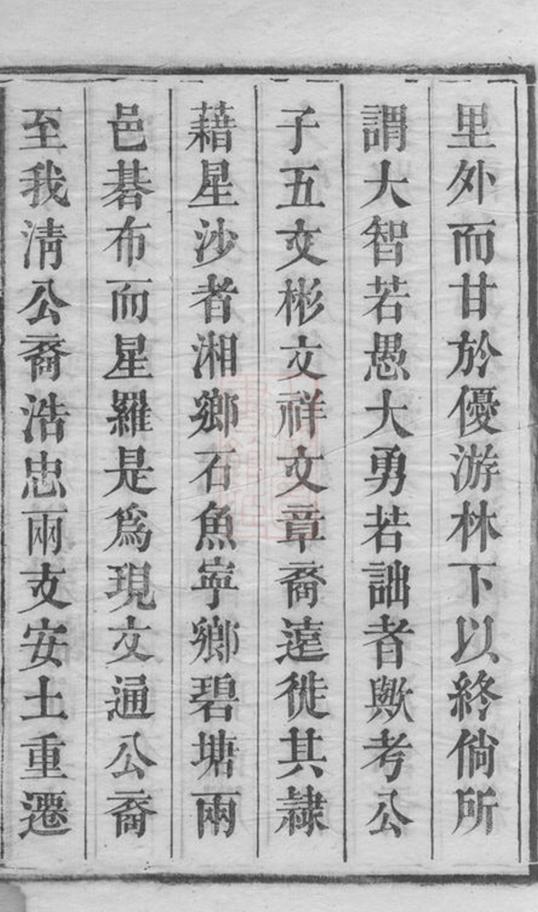 里外而甘於優游林下以終倘所
謂大智若愚大勇若詘者歟考公
子五文彬文祥文章裔遠徙其隷
藉星沙者湘鄉石魚寧鄉碧塘兩
邑碁布而星羅是爲現文通公裔
至我淸公裔浩忠兩支安土重遷